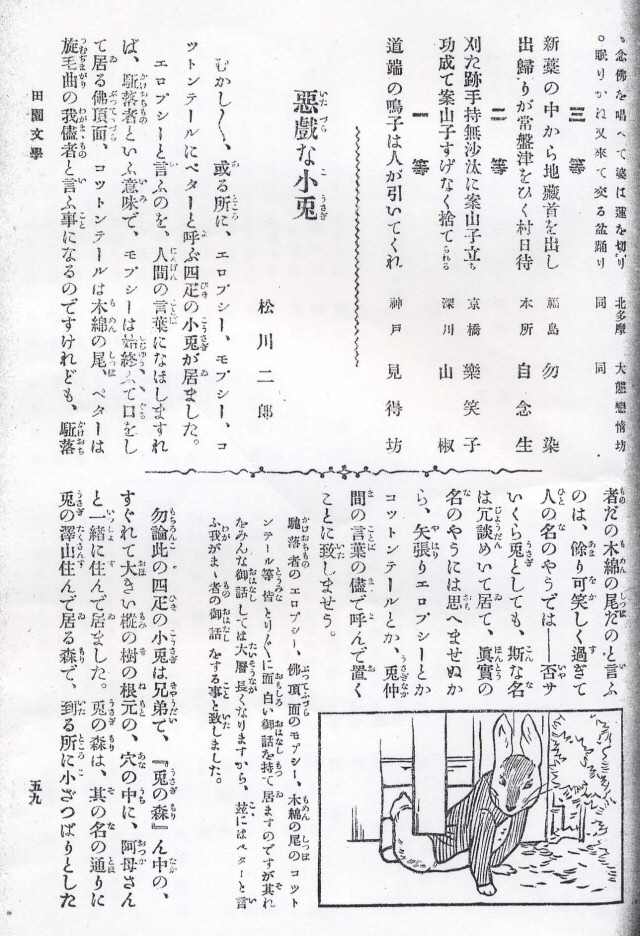 、念佛を唱へて婆は蓮を切り 北多摩 大熊戀情坊
。眠りかね又來て交る盆踊り 同 同
三等
新藁の中から地藏首を出し 福島 勿染
出歸りが常盤津をひく村日待 本所 自念生
二等
刈た跡手持無沙汰に案山子立ち 京橋 樂笑子
功成て案山子すげなく捨てられる 深川 山椒
一等
道端の鳴子は人が引いてくれ 神戸 見得坊
惡戲な小兎
松川二郎
むかし〳〵、或る所に、エロプシー、モプシー、コ
ツトンテールにペターと呼ぶ四疋の小兎が居ました。
エロプシーと言ふのを、人間の言葉になほしますれ
ば、駈落者といふ意味で、モプシーは始終ふて口をし
て居る佛頂面、コットンテールは木綿の尾、ペターは
旋毛曲の我儘者と言ふ事になるのですけれども、駈落
田園文學
者だの木綿の尾だのと言ふ
のは、餘り可笑しく過ぎて
人の名のやうでは――否サ
いくら兎としても、斯な名
は冗談めいて居て、眞實の
名のやうには思へませぬか
ら、矢張りエロプシーとか
コットンテールとか、兎仲
間の言葉の儘で呼んで置く
ことに致しませう。
駈落者のエロプシー、佛頂面のモプシー、木綿の尾のコット
ンテール等皆とり〴〵に面白い御話を持て居ますのですが其れ
をみんな御話しては大層長くなりますから、玆にはペターと言
ふ我がまゝ者の御話をする事と致しました。
勿論此の四疋の小兎は兄弟で、『兎の森』ん中の、
すぐれて大きい樅の樹の根元の、穴の中に、阿母さん
と一緒に住んで居ました。兎の森は、其の名の通りに
兎の澤山住んで居る森で、到る所に小ざつぱりとした
五九